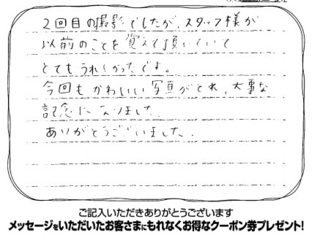 2回目の撮影でしたが、スタッフ様が
以前のことを覚えて頂いていて
とてもうれしかったでよ。
今回もかわいい写真がとれ、大事な
記念になりました
ありがとうございました。
ご記入いただきありがとうございます
メッセージをいただいたお客さまにもれなくお得なクーポン券プレゼント!